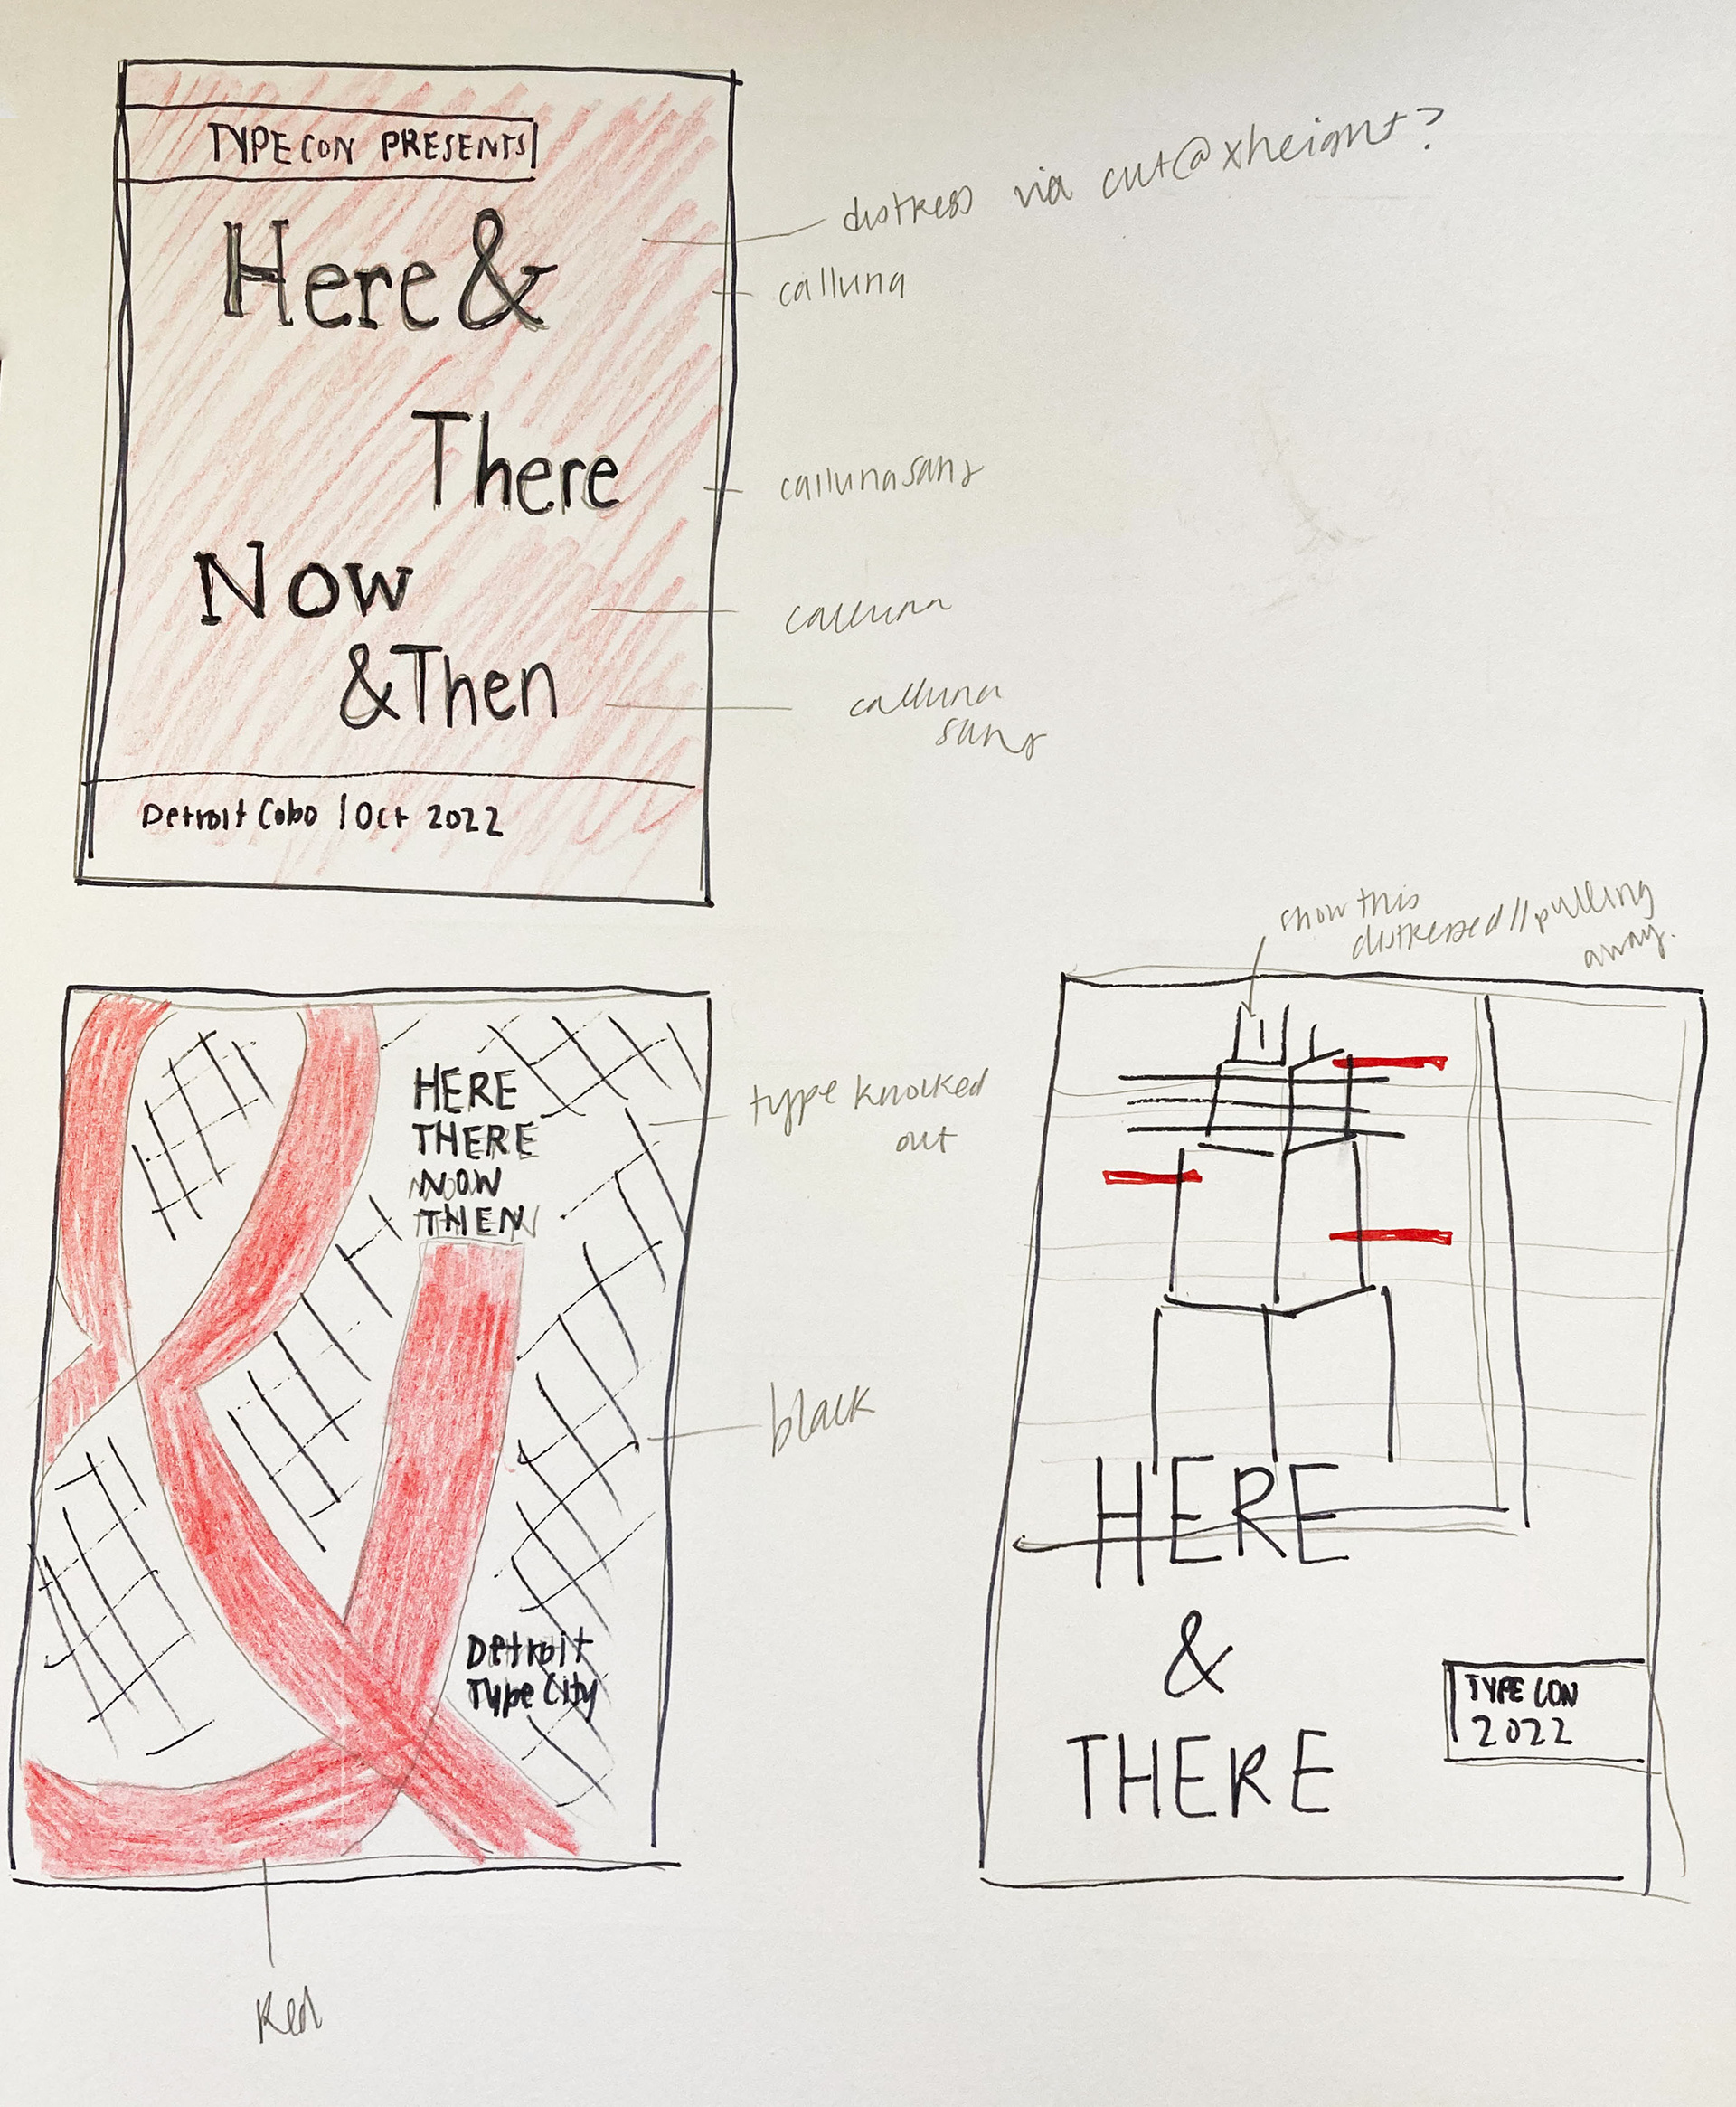 TYPECON PRESENTS
Here &
There
Now
& Then
Detroit Cobo | Oct 2022
distress via cut@xheight?
calluna
calluna sans
calluna
calluna
sans
HERE
THERE
NOW
THEN
Detroit
Type City
type knocked
out
black
Red
show this
distressed//pulling
away.
HERE
&
THERE
TYPE CON
2022